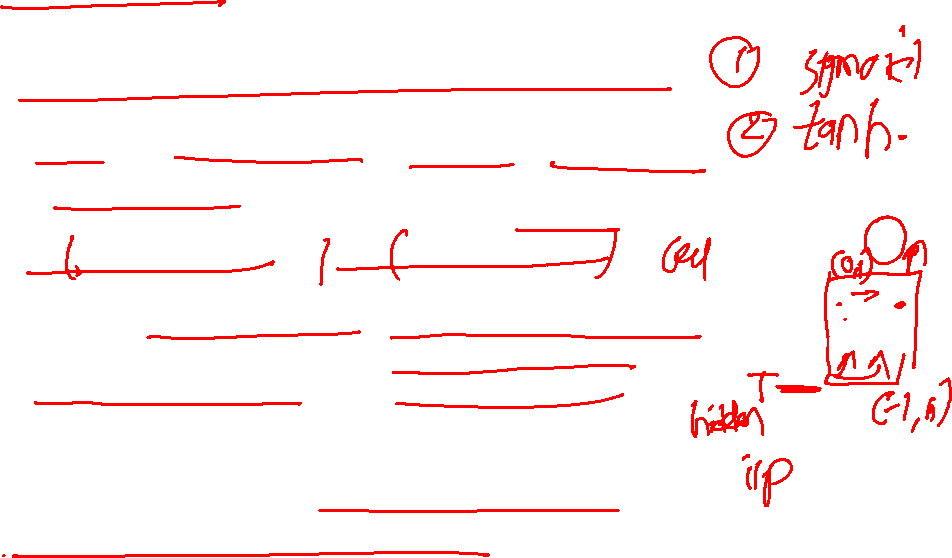 ① sigmoid
② tanh.
cell
(0,1)
hidden
i/p
(-1, 1)